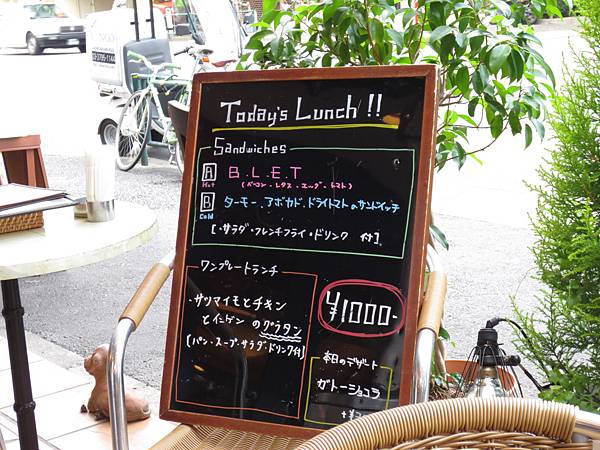 Today's Lunch!!
Sandwiches
A Hot B.L.E.T
(ベーコン・レタス・エッグ・トマト)
B Cold ターモン、アボカド、ドライトマトのサンドイッチ
[・サラダ・フレンチフライ・ドリンク 付]
ワンプレートランチ
・サツマイモとチキン
とインゲンのグラタン
(パン・スープ・サラダ・ドリンク付)
¥1000-
本日のデザート
ガトーショコラ